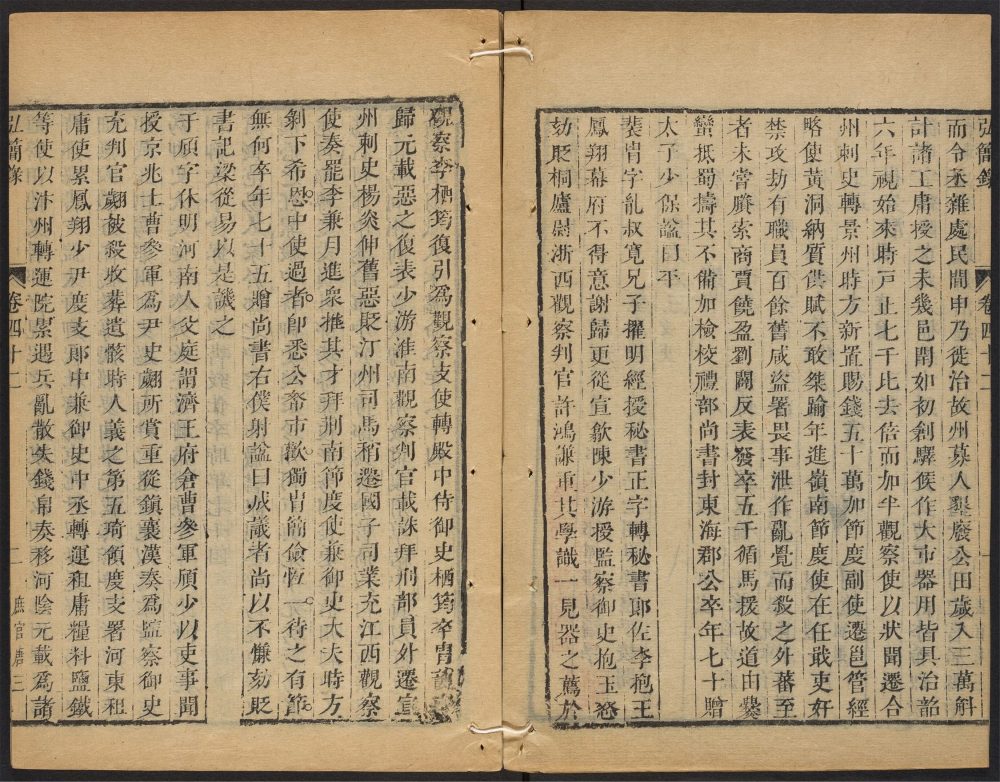 弘簡錄 卷四十二
而令丞雜處民間申乃徙治故州募人墾廢公田歲入三萬斛
計諸工庸授之未幾邑閈如初創驛候作大市器用皆具治詔
六年視始來時戶止七千比去倍而加半觀察使以狀聞遷合
州刺史轉景州時方新置賜錢五十萬加節度副使遷邕管經
略使黃洞納質供賦不敢桀踰年進嶺南節度使在任戢吏奸
禁攻劫有職員百餘舊咸盜署畏事泄作亂覺而殺之外蕃至
者未嘗賸索商賈饒盈劉闢反表發卒五千循馬援故道由爨
蠻抵蜀擣其不備加檢校禮部尚書封東海郡公卒年七十贈
太子少保諡曰平
裴冑字胤叔寬兄子擢明經授秘書正字轉秘書郎佐李抱玉
鳳翔幕府不得意謝歸更從宣歙陳少游授監察御史抱玉怒
劾貶桐廬尉浙西觀察判官許鴻謙重其學識一見器之薦於
觀察李栖筠復引爲觀察支使轉殿中侍御史栖筠卒冑護
歸元載惡之復表少游淮南觀察判官載誅拜刑部員外遷宣
州刺史楊炎伸舊惡貶汀州司馬稍遷國子司業充江西觀察
使奏罷李兼月進衆推其才拜荆南節度使兼御史大夫時方
剩下希恩中使過者卽悉公帑市歡獨冑簡儉恆一待之有節
無何卒年七十五贈尚書右僕射諡曰成議者尚以不慊劾貶
書記梁從易以是譏之
于頎字休明河南人父庭謂濟王府倉曹參軍頎少以吏事聞
授京兆士曹參軍爲尹史翽所賞重從鎭襄漢奏爲監察御史
充判官翽被殺收葬遺骸時人義之第五琦領度支署河東租
庸使累鳳翔少尹度支郎中兼御史中丞轉運租庸糧料鹽鐵
等使以汴州轉運院累遇兵亂散失錢帛奏移河陰元載爲諸
弘簡錄 卷四十二 二 庶官唐三